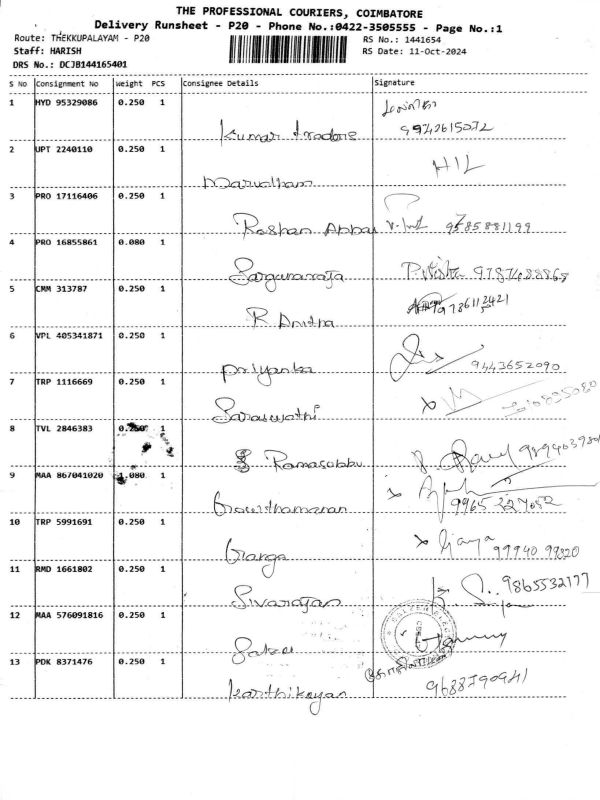 THE PROFESSIONAL COURIERS, COIMBATORE
Delivery Runsheet - P20 - Phone No.:0422-3505555 - Page No.:1
Route: THEKKUPALAYAM - P20 RS No.: 1441654
Staff: HARISH RS Date: 11-Oct-2024
DRS No.: DCJB144165401
S No Consignment No Weight PCS Consignee Details Signature
1 HYD 95329086 0.250 1
Kumar 9942615072
2 UPT 2240110 0.250 1 HIL
3 PRO 17116406 0.250 1
Roshan Abbas 9585881199
4 PRO 16855861 0.080 1
9787488868
5 CMM 313787 0.250 1
R Anitha
6 VPL 405341871 0.250 1
Priyanka 9443652090
7 TRP 1116669 0.250 1
Saraswathi
8 TVL 2846383 0.250 1
S Ramasubbu
9 MAA 867041020 1.080 1
Gowthamaran
10 TRP 5991691 0.250 1
Giarga 99940 99820
11 RMD 1661802 0.250 1 9865532177
Sivarajan
12 MAA 576091816 0.250 1
13 PDK 8371476 0.250 1
Karthikeyan